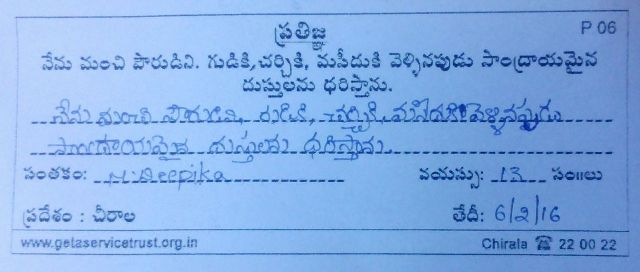 ప్రతిజ్ఞ P 06
నేను మంచి పౌరుడిని. గుడికి,చర్చికి, మసీదుకి వెళ్ళినపుడు సాంద్రాయమైన
దుస్తులను ధరిస్తాను.
నేను మంచి పౌరుడిని, గుడికి, చర్చికి, మసీదుకి వెళ్ళినప్పుడు
సాంద్రాయమైన దుస్తులను ధరిస్తాను.
సంతకం: M.Deepika వయస్సు: 13 సం॥లు
ప్రదేశం : చీరాల తేదీ: 6/2/16
www.getaservicetrust.org.in Chirala ☎ 22 00 22